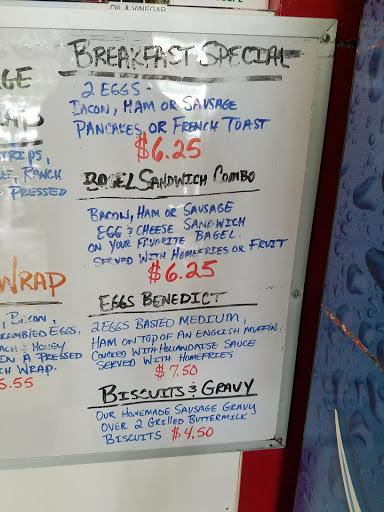 OIL & VINEGAR
BREAKFAST SPECIAL
2 EGGS -
BACON, HAM OR SAUSAGE
PANCAKES OR FRENCH TOAST
$6.25
BAGEL SANDWICH COMBO
BACON, HAM OR SAUSAGE
EGG & CHEESE SANDWICH
ON YOUR FAVORITE BAGEL.
SERVED WITH HOMEFRIES OR FRUIT
$6.25
EGGS BENEDICT
2 EGGS BASTED MEDIUM,
HAM ON TOP OF AN ENGLISH MUFFIN.
COVERED WITH HOLLANDAISE SAUCE
SERVED WITH HOMEFRIES
$7.50
BISCUITS & GRAVY
OUR HOMEMADE SAUSAGE GRAVY
OVER 2 GRILLED BUTTERMILK
BISCUITS $4.50
TRIPS,
RANCH
PRESSED
WRAP
BACON,
SCRAMBLED EGGS,
& HONEY
IN A PRESSED
WRAP.
5.55